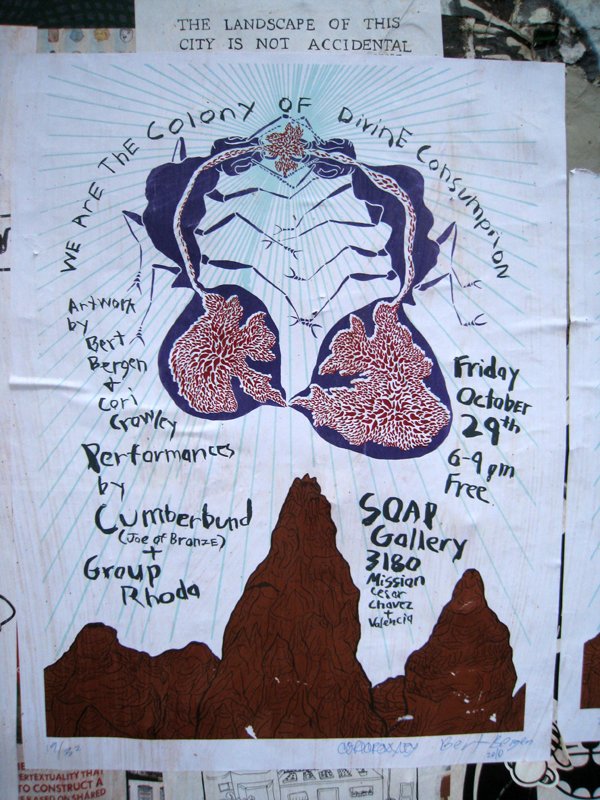 THE LANDSCAPE OF THIS
CITY IS NOT ACCIDENTAL
WE ARE THE COLONY OF DIVINE CONSUMPTION
Artwork
by
Bert
Bergen
+
Cori
Crowley
Performances
by
Cumberbund
(Joe of BRONZE)
+
Group
Rhoda
Friday
October
29th
6-9pm
Free
SOAP
Gallery
3180
Mission
Cesar
Chavez
+
Valencia
Bert Bergen
2010
ERTEXTUALITY THAT
TO CONSTRUCT A
BASED ON SHARED